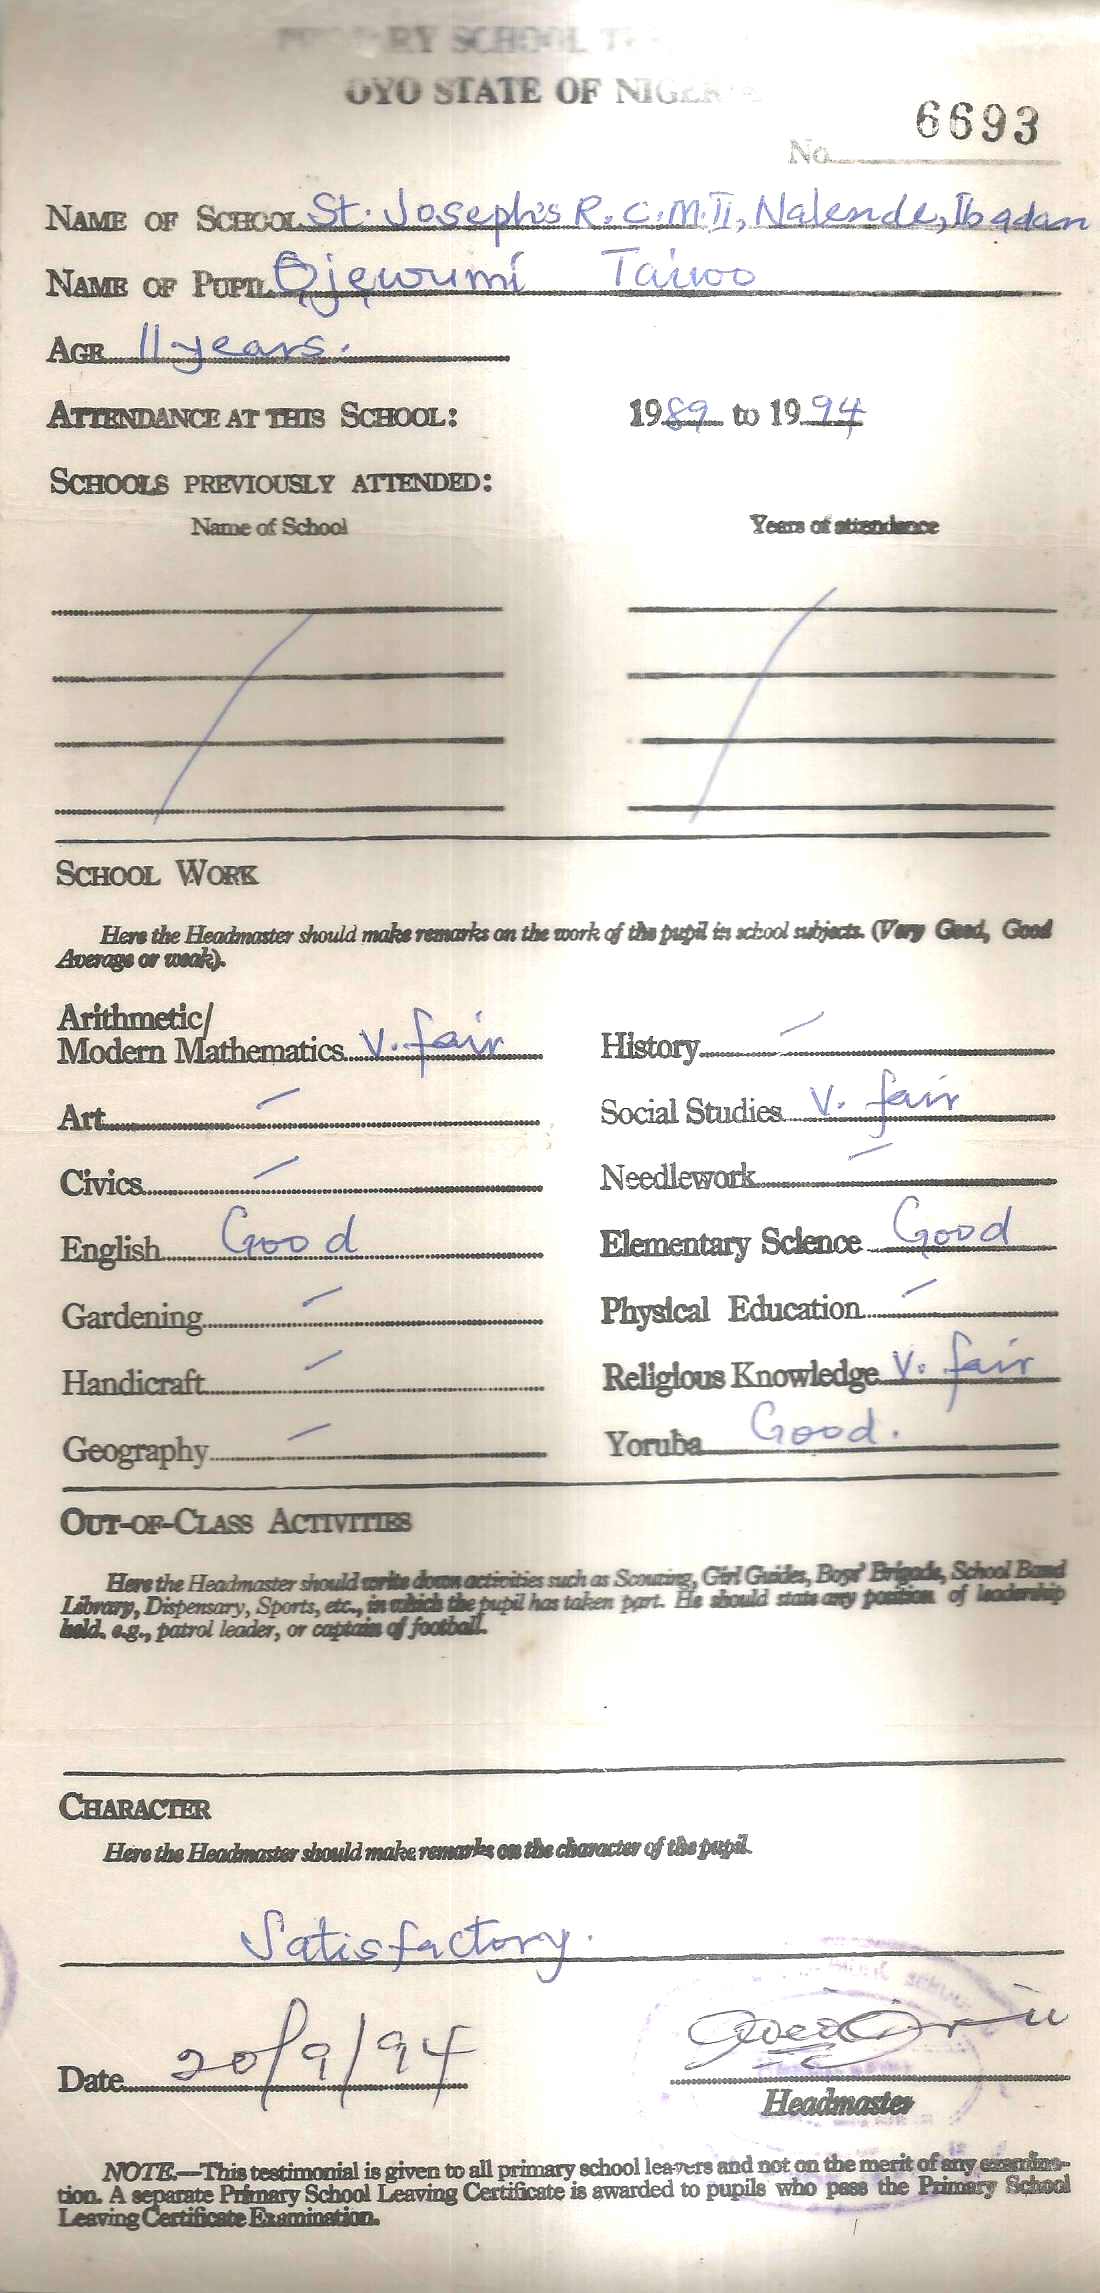 PRIMARY SCHOOL
OYO STATE OF NIGERIA
No. 6693
NAME OF SCHOOL St. Joseph's R.C.M.II, Nalende, Ibadan
NAME OF PUPIL Ojewumi Taiwo
AGE 11 years.
ATTENDANCE AT THIS SCHOOL: 1989 to 1994
SCHOOLS PREVIOUSLY ATTENDED:
Name of School Years of attendance
SCHOOL WORK
Here the Headmaster should make remarks on the work of the pupil in school subjects. (Very Good, Good
Average or weak).
Arithmetic/
Modern Mathematics V. fair History
Art Social Studies V. fair
Civics Needlework
English Good Elementary Science Good
Gardening Physical Education
Handicraft Religious Knowledge V. fair
Geography Yoruba Good.
OUT-OF-CLASS ACTIVITIES
Here the Headmaster should write down activities such as Scouting, Girl Guides, Boys' Brigade, School Band
Library, Dispensary, Sports, etc., in which the pupil has taken part. He should state any position of leadership
held. e.g., patrol leader, or captain of football.
CHARACTER
Here the Headmaster should make remarks on the character of the pupil.
Satisfactory.
Date 20/9/94
Headmaster
NOTE.—This testimonial is given to all primary school leavers and not on the merit of any examina-
tion. A separate Primary School Leaving Certificate is awarded to pupils who pass the Primary School
Leaving Certificate Examination.